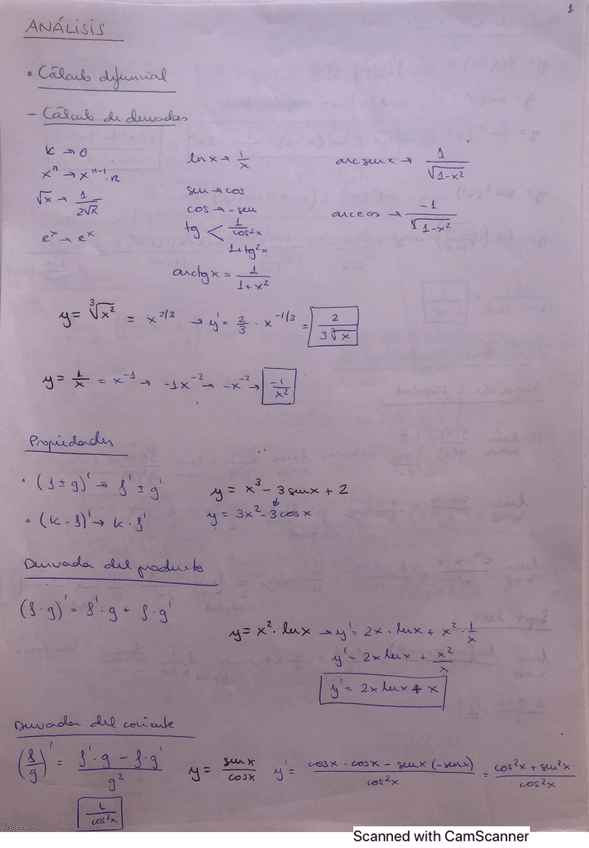 1
ANÁLISIS
• Cálculo diferencial
- Cálculo de derivadas
k → 0
xⁿ → xⁿ⁻¹·n
√x → 1/(2√x)
eˣ → eˣ
ln x → 1/x
sen → cos
cos → -sen
tg < 1/cos²x
1+tg²x
arctg x = 1/(1+x²)
arcsen x → 1/√(1-x²)
arccos → -1/√(1-x²)
y = ∛x² = x^(2/3) → y' = 2/3 · x^(-1/3) = 2/(3∛x)
y = 1/x = x⁻¹ → -1x⁻² → -x⁻² → -1/x²
Propiedades
• (f ± g)' → f' ± g'
• (k · f)' → k · f'
y = x³ - 3 sen x + 2
y = 3x² - 3 cos x
Derivada del producto
(f·g)' = f'·g + f·g'
y = x² · ln x → y' = 2x · ln x + x² · 1/x
y' = 2x ln x + x²/x
y' = 2x ln x + x
Derivada del cociente
(f/g)' = (f'·g - f·g')/g²
y = sen x/cos x y' = (cos x · cos x - sen x (-sen x))/cos²x = (cos²x + sen²x)/cos²x
1/cos²x
Scanned with CamScanner